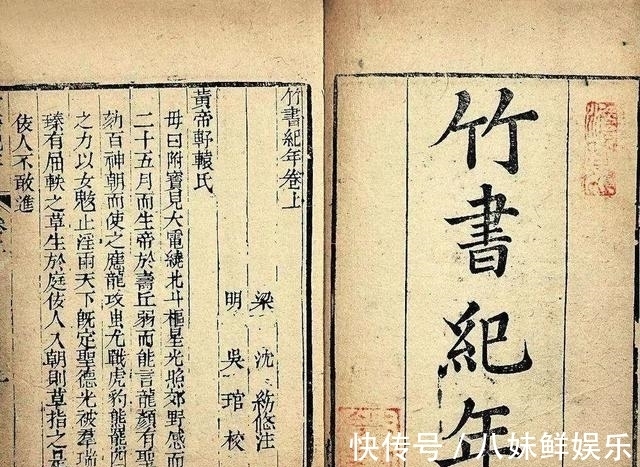 竹書紀年
竹書紀年卷上
梁 沈 注
明 吳 琯 校
黃帝軒轅氏
母曰附寶見大電繞北斗樞星光照郊野感而
二十五月而生帝於壽丘弱而能言龍顏有聖
劾百神朝而使之應龍攻蚩尤戰虎豹熊羆
之力以女魃止淫雨天下旣定聖德光被羣瑞
臻有屈軼之草生於庭佞人入朝則草指之是
佞人不敢進
快传号/八妹鲜娱乐